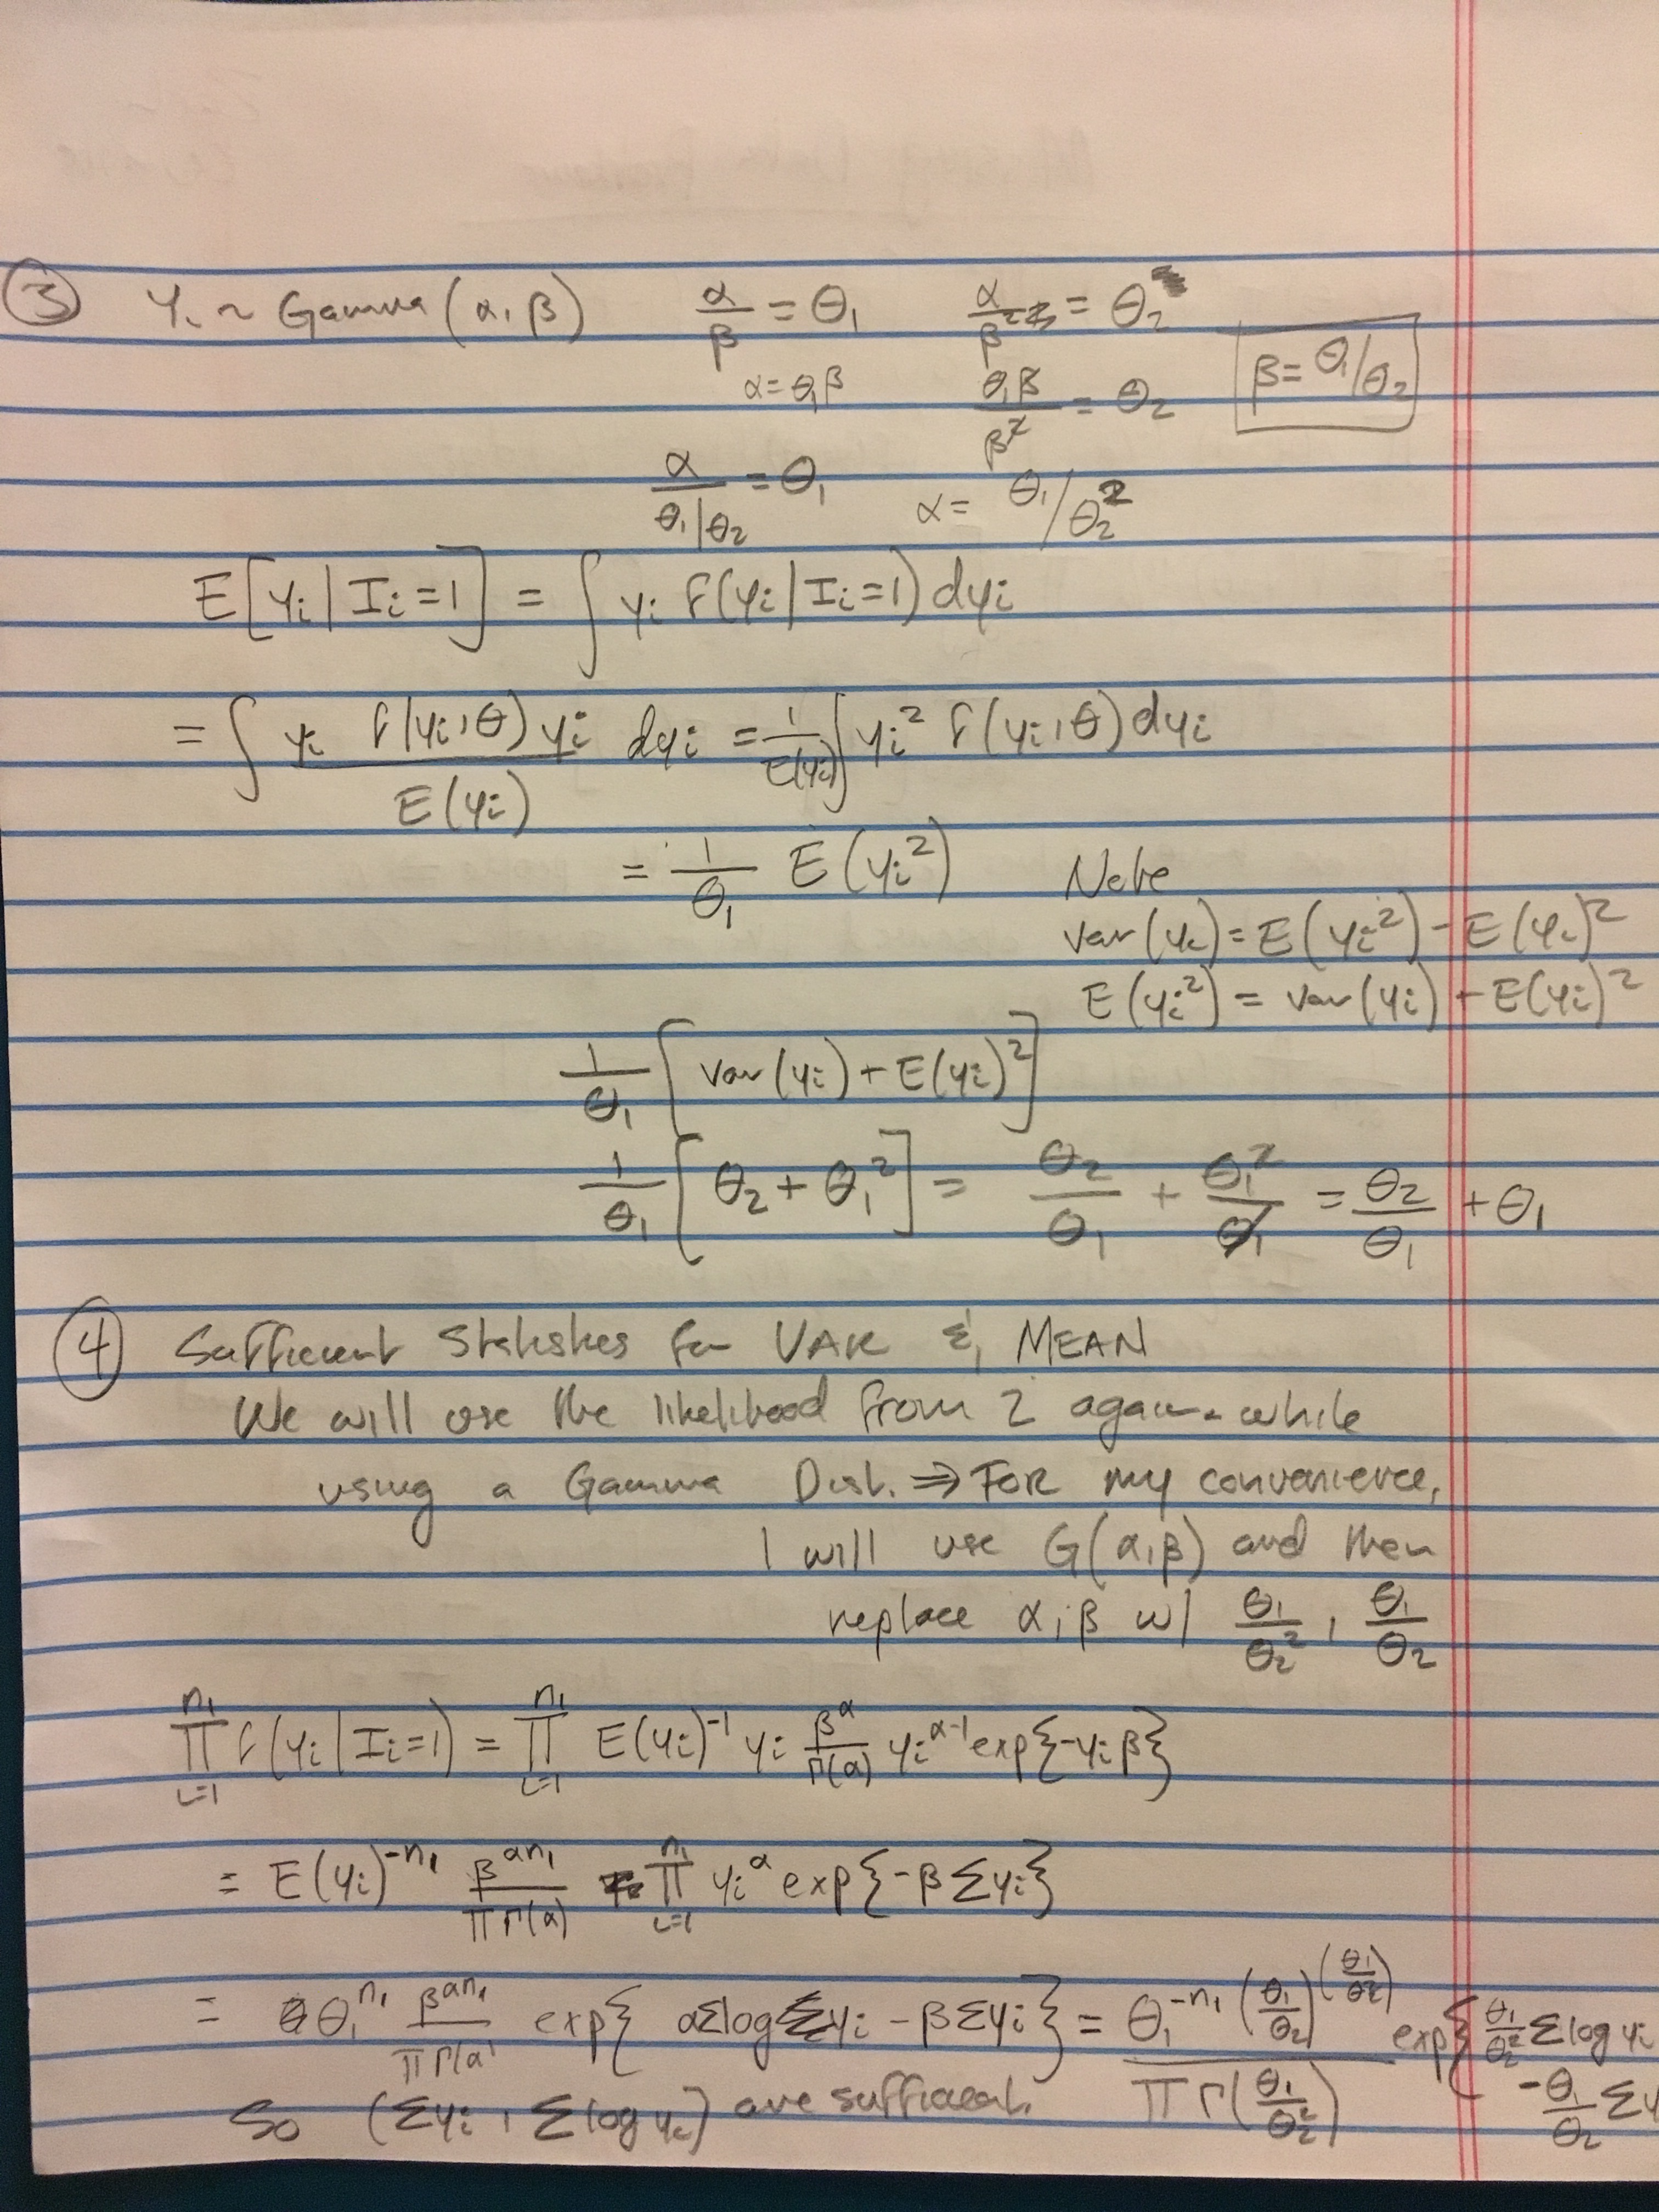 ③ Yᵢ ~ Gamma(α, β) α/β = θ₁ α/β² = θ₂
α = θ₁β θ₁β/β² = θ₂ β = θ₁/θ₂
α/(θ₁/θ₂) = θ₁ α = θ₁/θ₂²
E[yᵢ | Iᵢ=1] = ∫ yᵢ f(yᵢ | Iᵢ=1) dyᵢ
= ∫ yᵢ f(yᵢ, θ) yᵢ / E(yᵢ) dyᵢ = 1/E(yᵢ) ∫ yᵢ² f(yᵢ, θ) dyᵢ
= 1/θ₁ E(yᵢ²) Note
var(yᵢ) = E(yᵢ²) - E(yᵢ)²
E(yᵢ²) = var(yᵢ) + E(yᵢ)²
1/θ₁ [var(yᵢ) + E(yᵢ)²]
1/θ₁ [θ₂ + θ₁²] = θ₂/θ₁ + θ₁²/θ₁ = θ₂/θ₁ + θ₁
④ Sufficient Statistics for VAR & MEAN
We will use the likelihood from 2 again while
using a Gamma Dist. ⇒ FOR my convenience,
I will use G(α, β) and then
replace α, β w/ θ₁/θ₂², θ₁/θ₂
∏ᵢ₌₁ⁿ¹ f(yᵢ | Iᵢ=1) = ∏ᵢ₌₁ⁿ¹ E(yᵢ)⁻¹ yᵢ β^α/Γ(α) yᵢ^(α-1) exp{-yᵢβ}
= E(yᵢ)^(-n₁) β^(αn₁)/∏Γ(α) ∏ᵢ₌₁ⁿ¹ yᵢ^α exp{-β Σyᵢ}
= θ₁^n₁ β^(αn₁)/∏Γ(α) exp{αΣlog yᵢ - βΣyᵢ} = θ₁^(-n₁) (θ₁/θ₂)^(θ₁/θ₂²) / ∏Γ(θ₁/θ₂²) exp{θ₁/θ₂² Σlog yᵢ
- θ₁/θ₂ Σy
So (Σyᵢ, Σlog yᵢ) are sufficient.